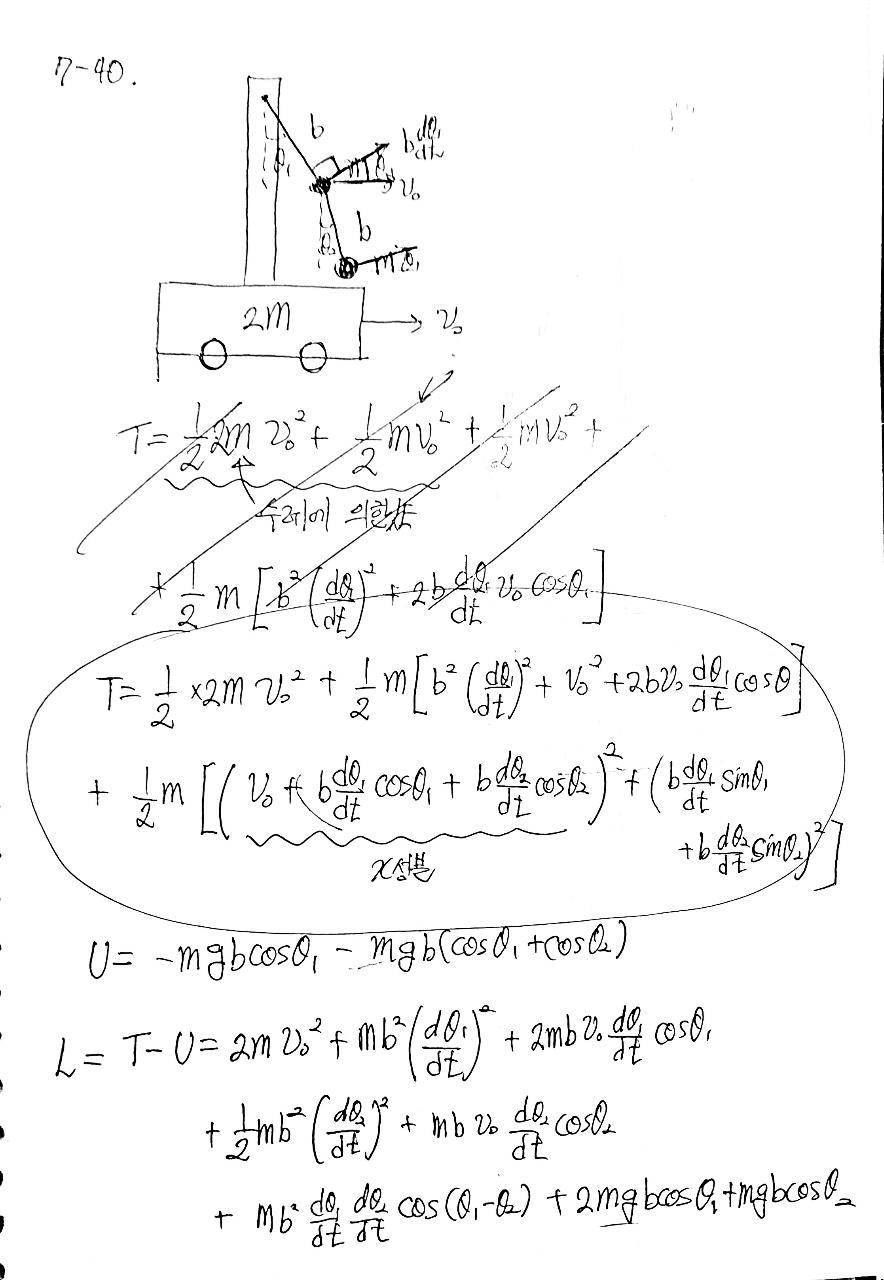 7-40.
b
b dθ₁/dt
θ₁
m
θ₁
v₀
b
θ₂
m θ₁
2m
v₀
T= 1/2 2m v₀² + 1/2 mv₀² + 1/2 mv₀² +
수레에 의한
+ 1/2 m [b² (dθ₁/dt)² + 2b dθ₁/dt v₀ cosθ₁]
T= 1/2 ×2m v₀² + 1/2 m[b² (dθ₁/dt)² + v₀² +2bv₀ dθ₁/dt cosθ]
+ 1/2 m [(v₀ + b dθ₁/dt cosθ₁ + b dθ₂/dt cosθ₂)² + (b dθ₁/dt sinθ₁
+b dθ₂/dt sinθ₂)²]
x성분
U= -mgbcosθ₁ - mgb(cosθ₁+cosθ₂)
L= T-U= 2m v₀² + mb² (dθ₁/dt)² + 2mb v₀ dθ₁/dt cosθ₁
+ 1/2 mb² (dθ₂/dt)² + mb v₀ dθ₂/dt cosθ₂
+ mb² dθ₁/dt dθ₂/dt cos(θ₁-θ₂) + 2mgbcosθ₁+mgbcosθ₂